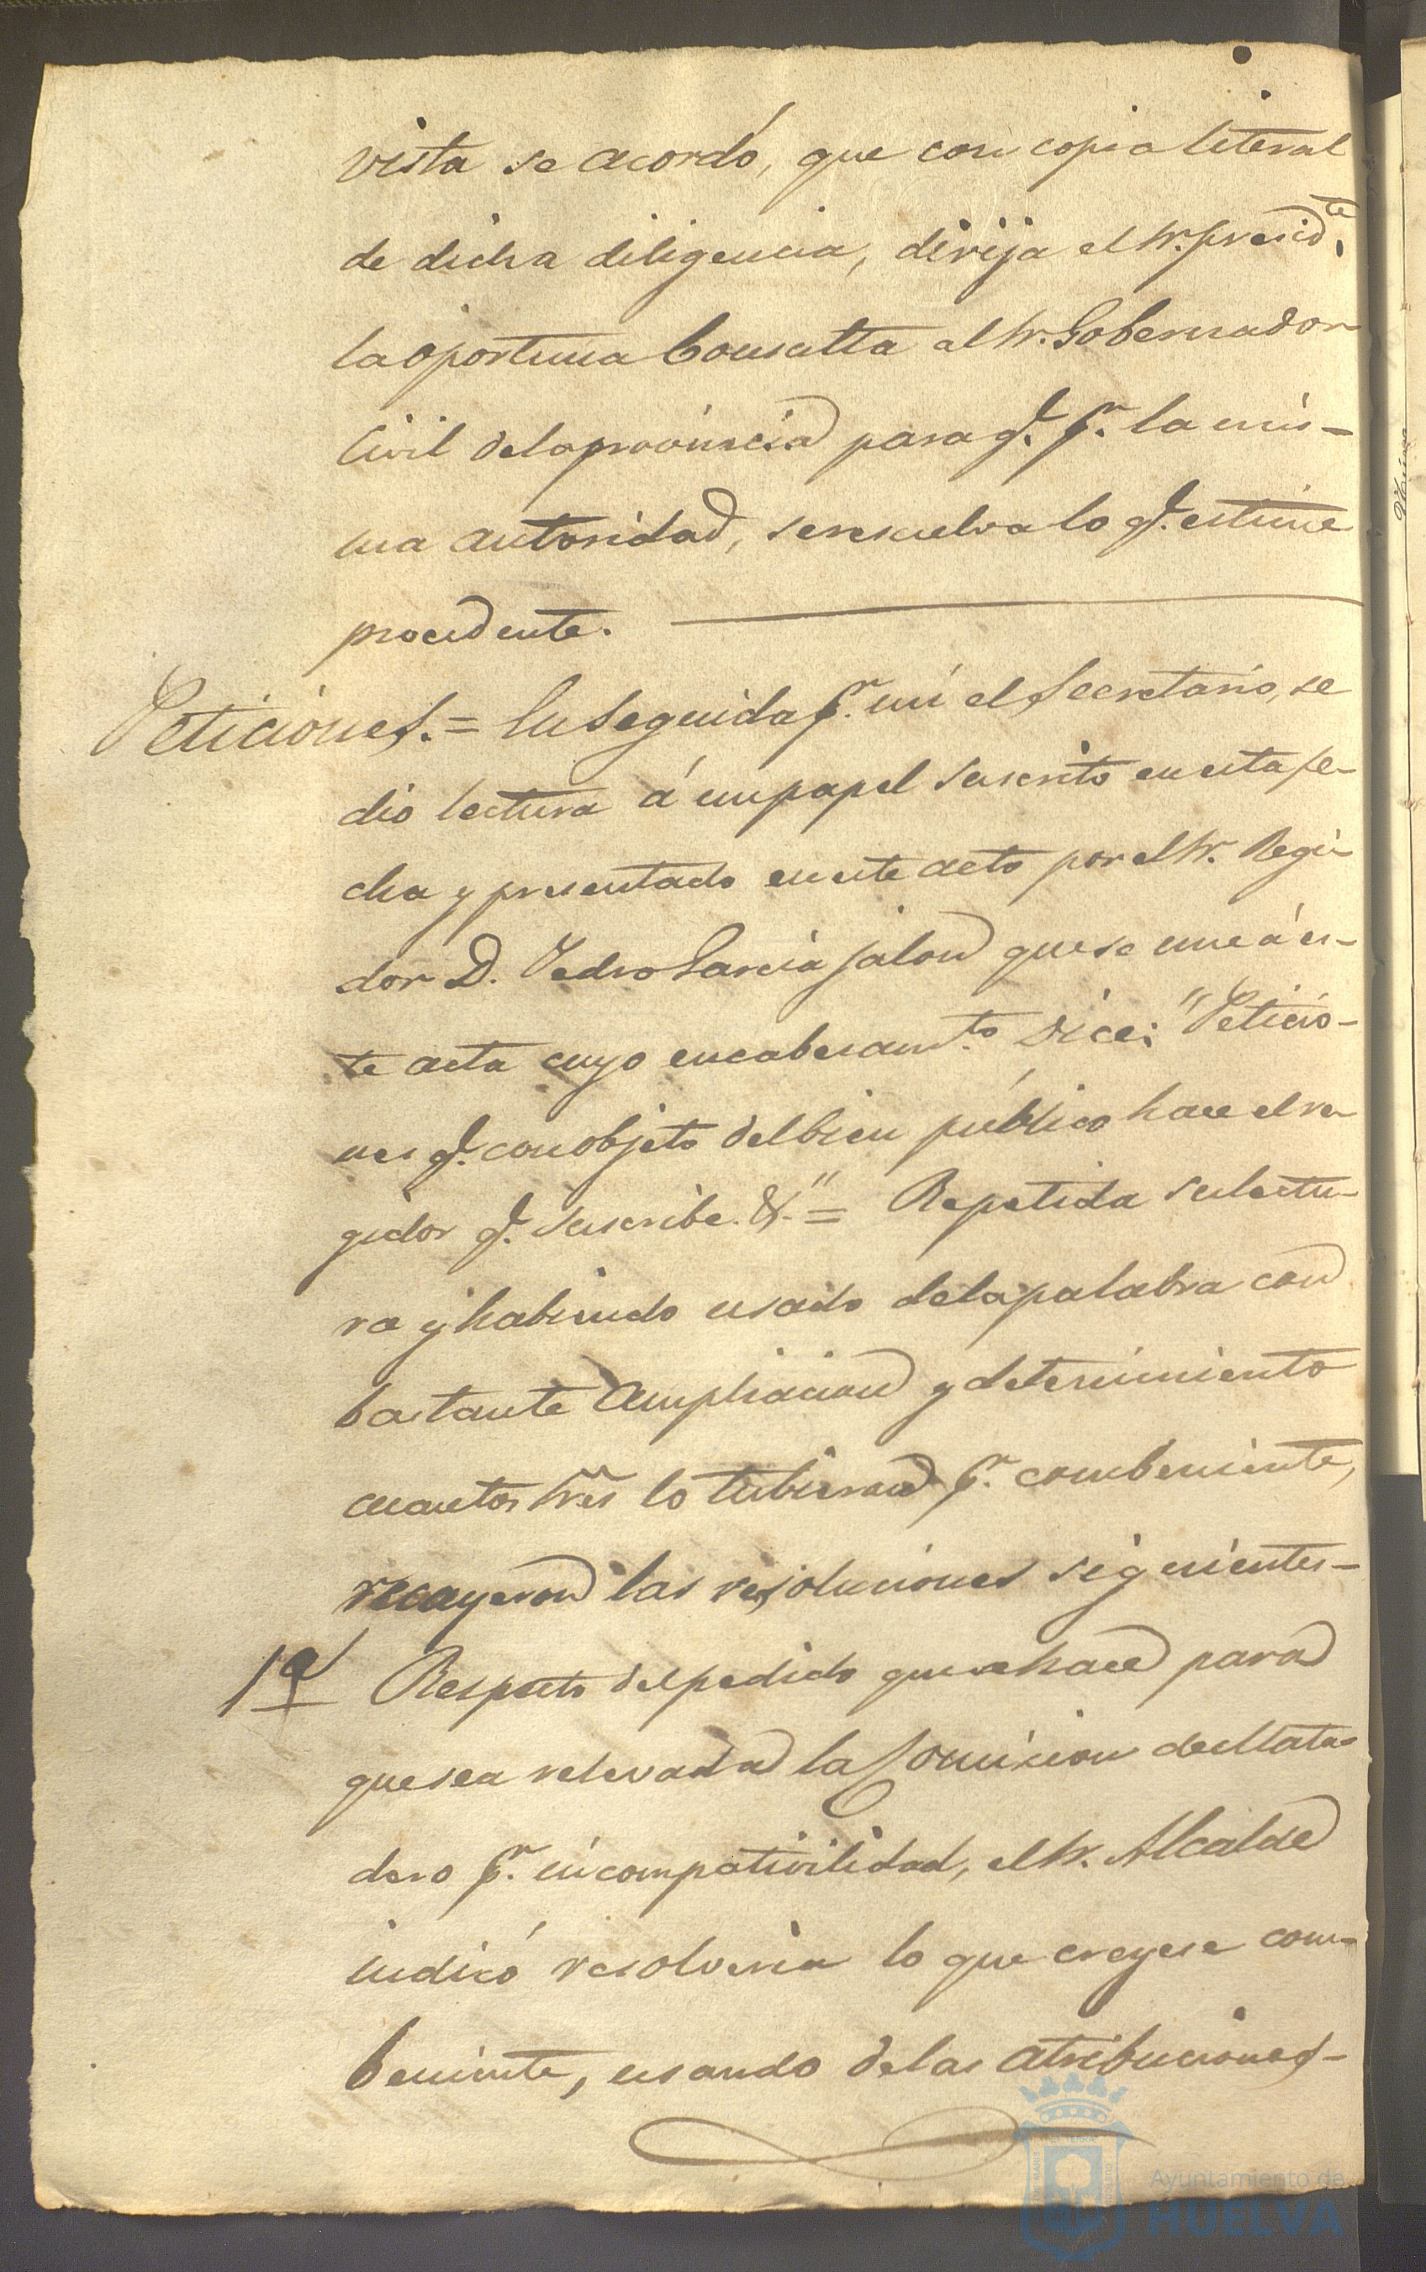 vista se acordó, que con copia literal
de dicha diligencia, dirija el Sr. presid.te
la oportuna Consulta al Sr. Gobernador
Civil de la provincia para q.e p.r la mis-
ma autoridad, se resuelva lo q.e estime
procedente.
Peticiones. = En seguida p.r mi el Secretario, se
dio lectura á un papel suscrito en esta fe-
cha y presentado en este acto por el Sr. Regi-
dor D. Pedro Garcia Jalon que se une á es-
te acta cuyo encabesam.to Dice: "Peticio-
nes q.e con objeto del bien público hace el re-
gidor q.e suscribe. &." = Repetida su lectu-
ra y habiendo usado de la palabra con
bastante ampliacion y detenimiento
cuantos Sres lo tubieron p.r combeniente,
recayeron las resoluciones siguientes-
1ª Respecto del pedido que se hace para
que sea relevada la Comision de Mata-
dero p.r incompativilidad, el Sr. Alcalde
indicó resolveria lo que creyese com-
beniente, usando de las atribuciones-
Ayuntamiento de
HUELVA